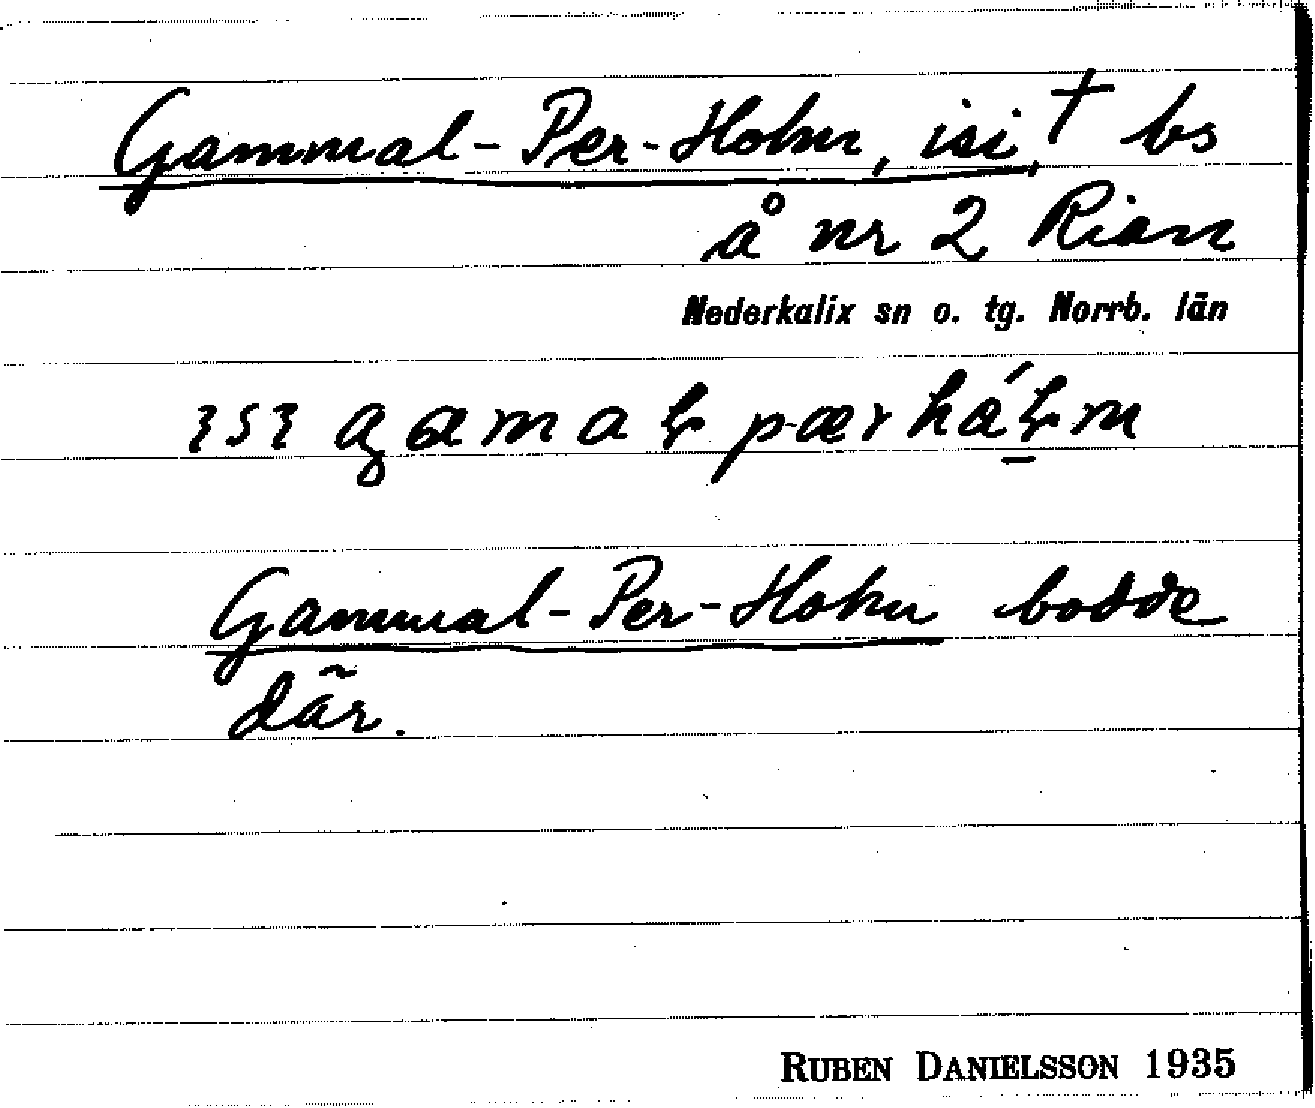 Gammal-Per-Holm, isi,† bs
å nr 2 Rian
Nederkalix sn o. tg. Norrb. län
Gammal-Per-Holm bodde
där.
RUBEN DANIELSSON 1935